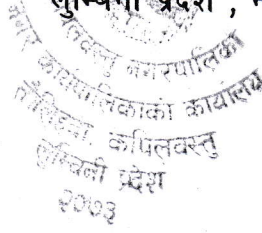 लुम्बिनी प्रदेश ,
नगरपालिका
नगर कार्यपालिकाको कार्यालय
तौलिहवा, कपिलवस्तु
लुम्बिनी प्रदेश
२०७३